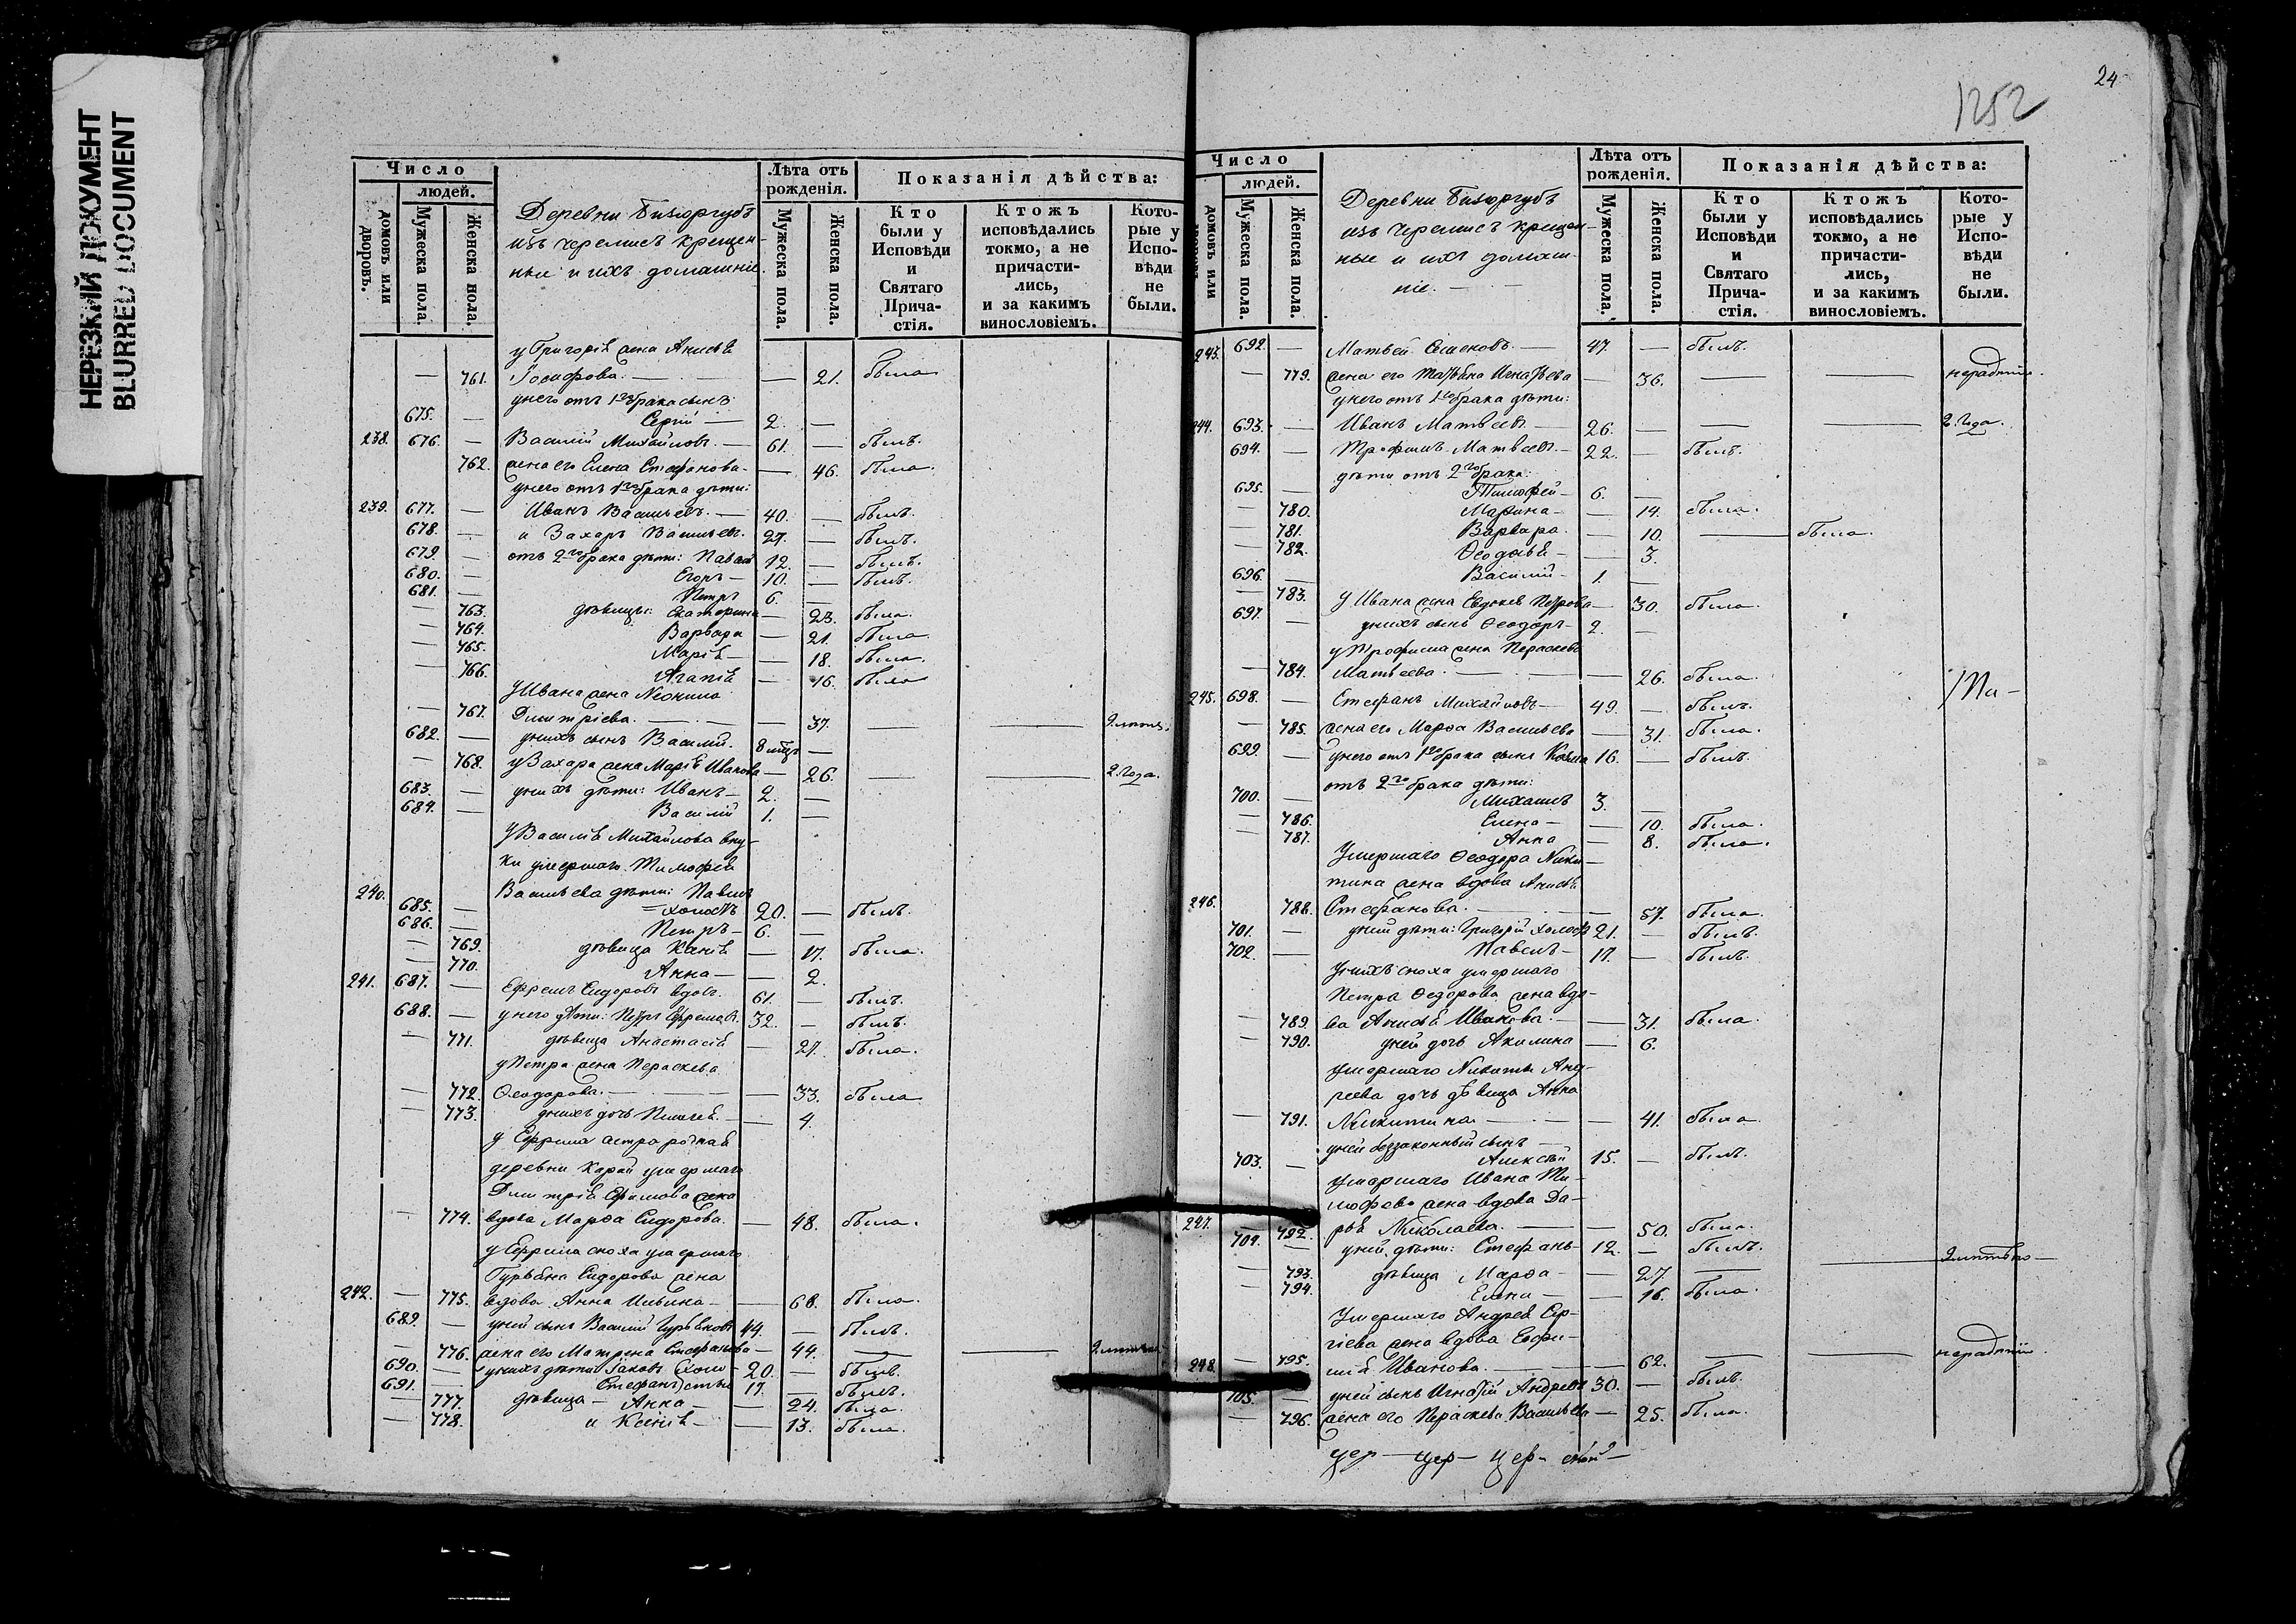 НЕРЕЗКИЙ ДОКУМЕНТ
BLURRED DOCUMENT
Число
людей.
домовъ или дворовъ.
Мужеска пола.
Женска пола.
Деревни
изъ черемисъ крещен-
ные и ихъ домашніе.
Лѣта отъ рожденія.
Мужеска пола.
Женска пола.
Показанія дѣйства:
Кто были у Исповѣди и Святаго Прича-стія.
Ктожъ исповѣдались токмо, а не причасти-лись, и за какимъ винословіемъ.
Кото-рые у Испо-вѣди не были.
у Григорія жена Анисья
— 761. Іосифова. — — 21. была
у него отъ 1го брака сынъ
675. — Сергій — 2. —
238. 676. — Василій Михайловъ. — 61. — былъ.
762. жена его Елена Стефанова — — 46. была.
у него отъ 1го брака дѣти:
239. 677. — Иванъ Васильевъ. — 40. — былъ.
678. — и Захаръ Васильевъ. 27. — былъ.
679. — отъ 2го брака дѣти: Павелъ 12. — былъ.
680. — Егоръ — 10. — былъ.
681. — Петръ 6. —
— 763. дѣвицы: Екатерина — 23. была.
— 764. Варвара — 21. была
— 765. Марія — — 18. была.
— 766. Агапія — 16. была
у Ивана жена Неонила
— 767. Димитріева. — — 37. — —
682. — у нихъ сынъ Василій. 8 —
— 768. у Захара жена Марія Иванова — 26. — — 2 года.
683. — у нихъ дѣти: Иванъ — 2. —
684. — Василій 1. —
у Василія Михайлова вну-
ки умершаго Тимофея
240. Васильева дѣти: Павелъ
685. — холостъ 20. — былъ.
686. — Петръ — 6. —
— 769. дѣвица Ксенія — 17. была.
— 770. Анна — — 2.
241. 687. — Ефремъ Сидоровъ вдовъ. 61. — былъ.
688. — у него дѣти: Петръ Ефремовъ. 32. — былъ.
— 771. дѣвица Анастасія — 27. была.
у Петра жена Параскева
— 772. Ѳеодорова. — — 33. была
— 773. у нихъ дочь — — 4.
у Ефрема сестра родная
деревни Карай умершаго
Димитрія Ефимова жена
— 774. вдова Марѳа Сидорова. — 48. была.
у Ефрема сноха умершаго
Гурьяна Сидорова жена
242. — 775. вдова Анна Ильина — — 68. была.
689. — у ней сынъ Василій Гурьяновъ 44. — былъ.
— 776. жена его Матрена Стефанова — 44. — —
690. — у нихъ дѣти: Іаковъ холо- 20. — былъ.
691. — Стефанъ сты 17. — былъ.
— 777. дѣвица — Анна — — 24. была.
— 778. и Ксенія — — 13. была.
24
1252
Число
людей.
домовъ или дворовъ.
Мужеска пола.
Женска пола.
Деревни
изъ черемисъ крещен-
ные и ихъ домаш-
ніе. —
Лѣта отъ рожденія.
Мужеска пола.
Женска пола.
Показанія дѣйства:
Кто были у Исповѣди и Святаго Прича-стія.
Ктожъ исповѣдались токмо, а не причасти-лись, и за какимъ винословіемъ.
Кото-рые у Испо-вѣди не были.
243. 692. — Матвей Семеновъ. — 47. — былъ.
— 779. жена его Татьяна Игнатьева — 36. — —
у него отъ 1го брака дѣти:
244. 693. — Иванъ Матвеевъ. — 26. — — — 2 года.
694. — Трофимъ Матвеевъ. — 22. — былъ.
дѣти отъ 2го брака:
695. — Тимофей — 6. —
— 780. Марина — — 14. была.
— 781. Варвара. — 10. — была.
— 782. Ѳеодосія — — 3.
696. — Василій — 1. —
— 783. у Ивана жена Евдокея Петрова — 30. была.
697. — у нихъ сынъ Ѳеодоръ — 2. —
у Трофима жена Параскева
— 784. Матвеева. — — 26. была.
245. 698. — Стефанъ Михайловъ — 49. — былъ.
— 785. жена его Марѳа Васильева — 31. была.
699. — у него отъ 1го брака сынъ Козма 16. — былъ.
отъ 2го брака дѣти:
700. — Михаилъ 3. —
— 786. Елена — — 10. была.
— 787. Анна — 8. была.
Умершаго Ѳеодора Ники-
тина жена вдова Анисія
246. 788. Стефанова. — — 57. была.
701. — у ней дѣти: Григорій холостъ 21. — былъ.
702. — Павелъ — 17. — былъ.
У нихъ сноха умершаго
Петра Ѳедорова жена вдо-
— 789. ва Анисія Иванова. — — 31. была.
— 790. у ней дочь Акилина — 6.
умершаго Никиты Анд-
реева дочь дѣвица Анна
— 791. Никитина — — 41. была
у ней беззаконный сынъ —
703. — Алексѣй 15. — былъ.
умершаго Ивана Ти-
мофеева жена вдова Да-
247. — 792. рья Николаева. — — 50. была.
704. — у ней дѣти: Стефанъ — 12. — былъ.
— 793. дѣвица Марѳа — — 27. — —
— 794. Елена — — 16. была.
Умершаго Андрея Сер-
гіева жена вдова Евфи-
248. — 795. мія Иванова. — — 62. — —
705. — у ней сынъ Игнатій Андреевъ 30. — былъ.
— 796. жена его Параскева Васильева — 25. была.